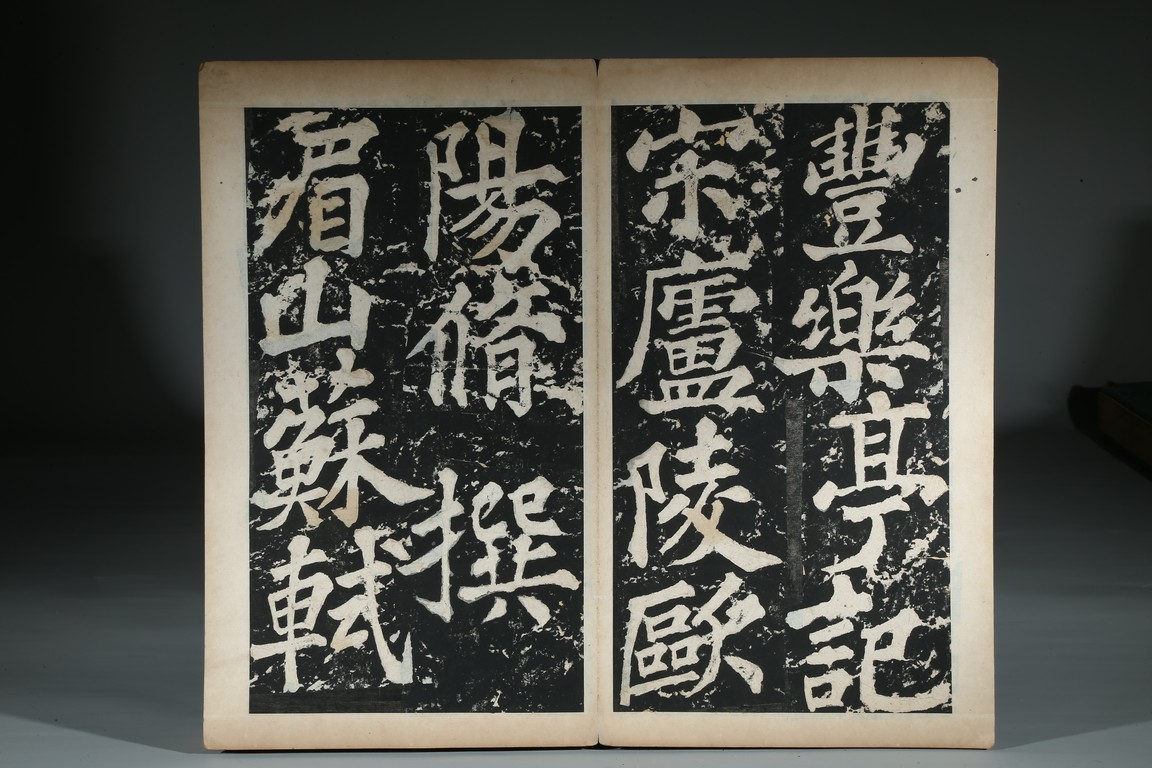 豐樂亭記
宋廬陵歐
陽脩撰
眉山蘇軾